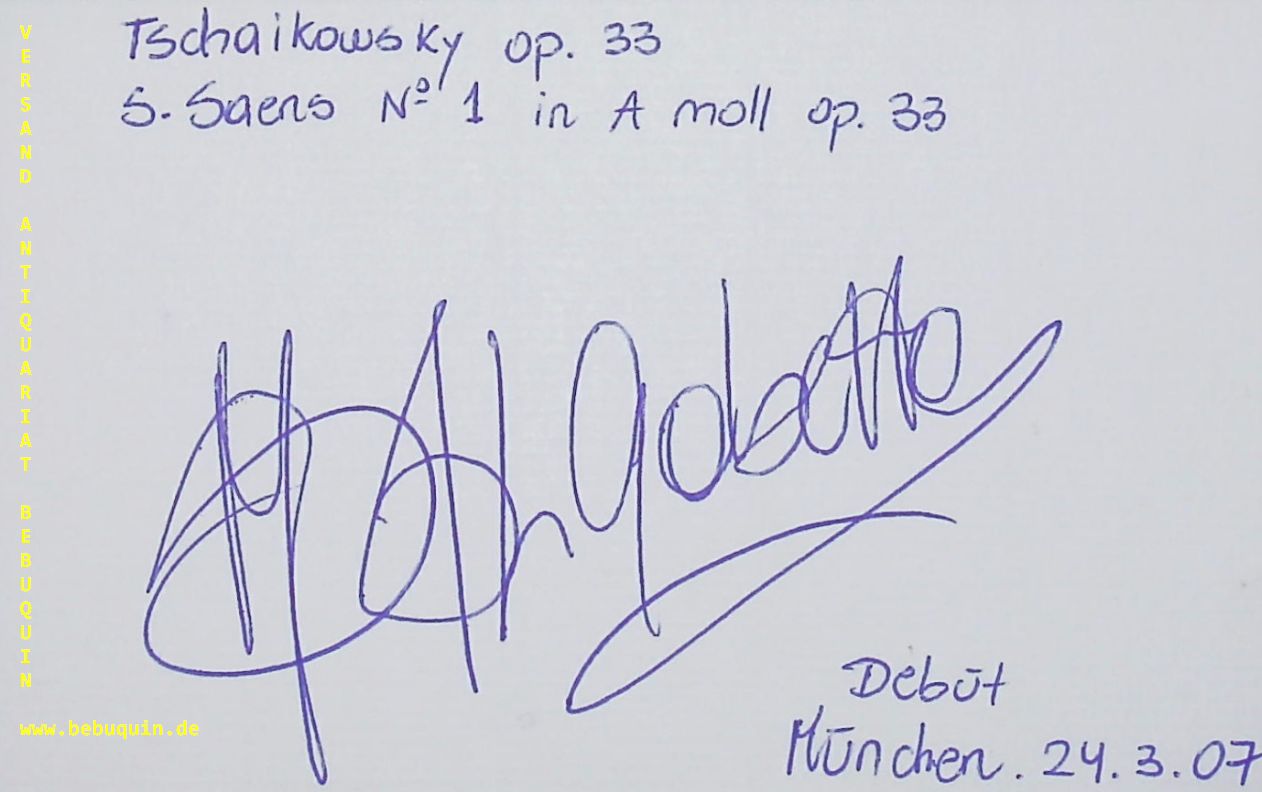 Tschaikowsky op. 33
S. Saens Nº 1 in A moll op. 33
Debūt
München. 24.3.07
VERSAND ANTIQUARIAT BEBUQUIN
www.bebuquin.de